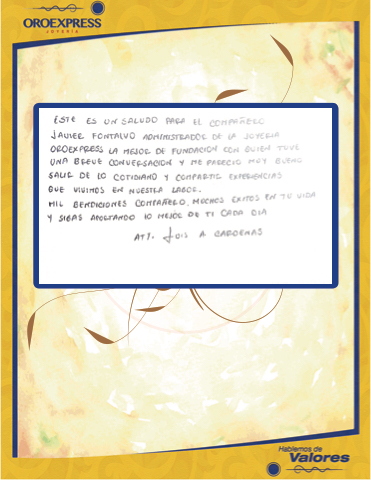 OROEXPRESS
JOYERÍA
ESTE ES UN SALUDO PARA EL COMPAÑERO
JAVIER FONTALVO ADMINISTRADOR DE LA JOYERIA
OROEXPRESS LA MEJOR DE FUNDACION CON QUIEN TUVE
UNA BREVE CONVERSACION Y ME PARECIO MUY BUENO
SALIR DE LO COTIDIANO Y COMPARTIR EXPERIENCIAS
QUE VIVIMOS EN NUESTRA LABOR.
MIL BENDICIONES COMPAÑERO, MUCHOS EXITOS EN TU VIDA
Y SIGAS APORTANDO LO MEJOR DE TI CADA DIA
ATT. LUIS A. CARDENAS
Hablemos de
Valores